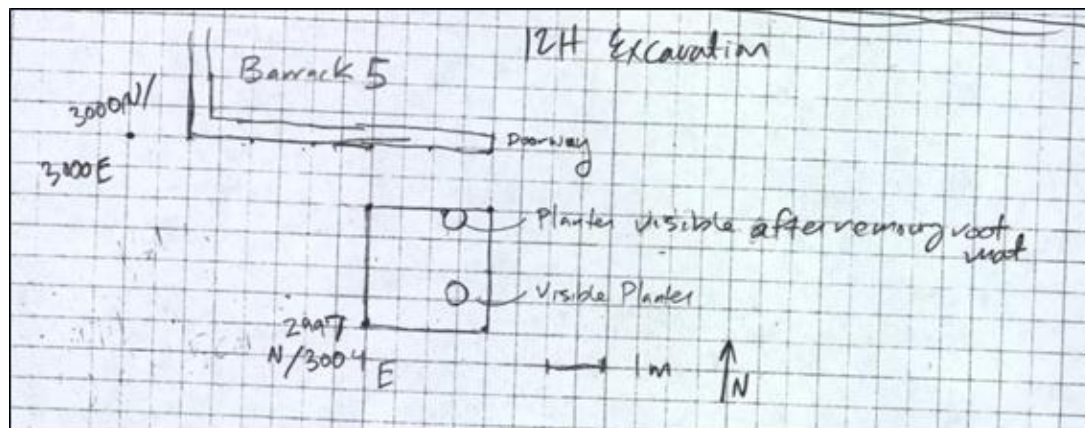 12H Excavation
Barrack 5
3000N/
3000E
Doorway
Planter visible after removing root
mat
Visible Planter
2997
N/3004
E
1m
N